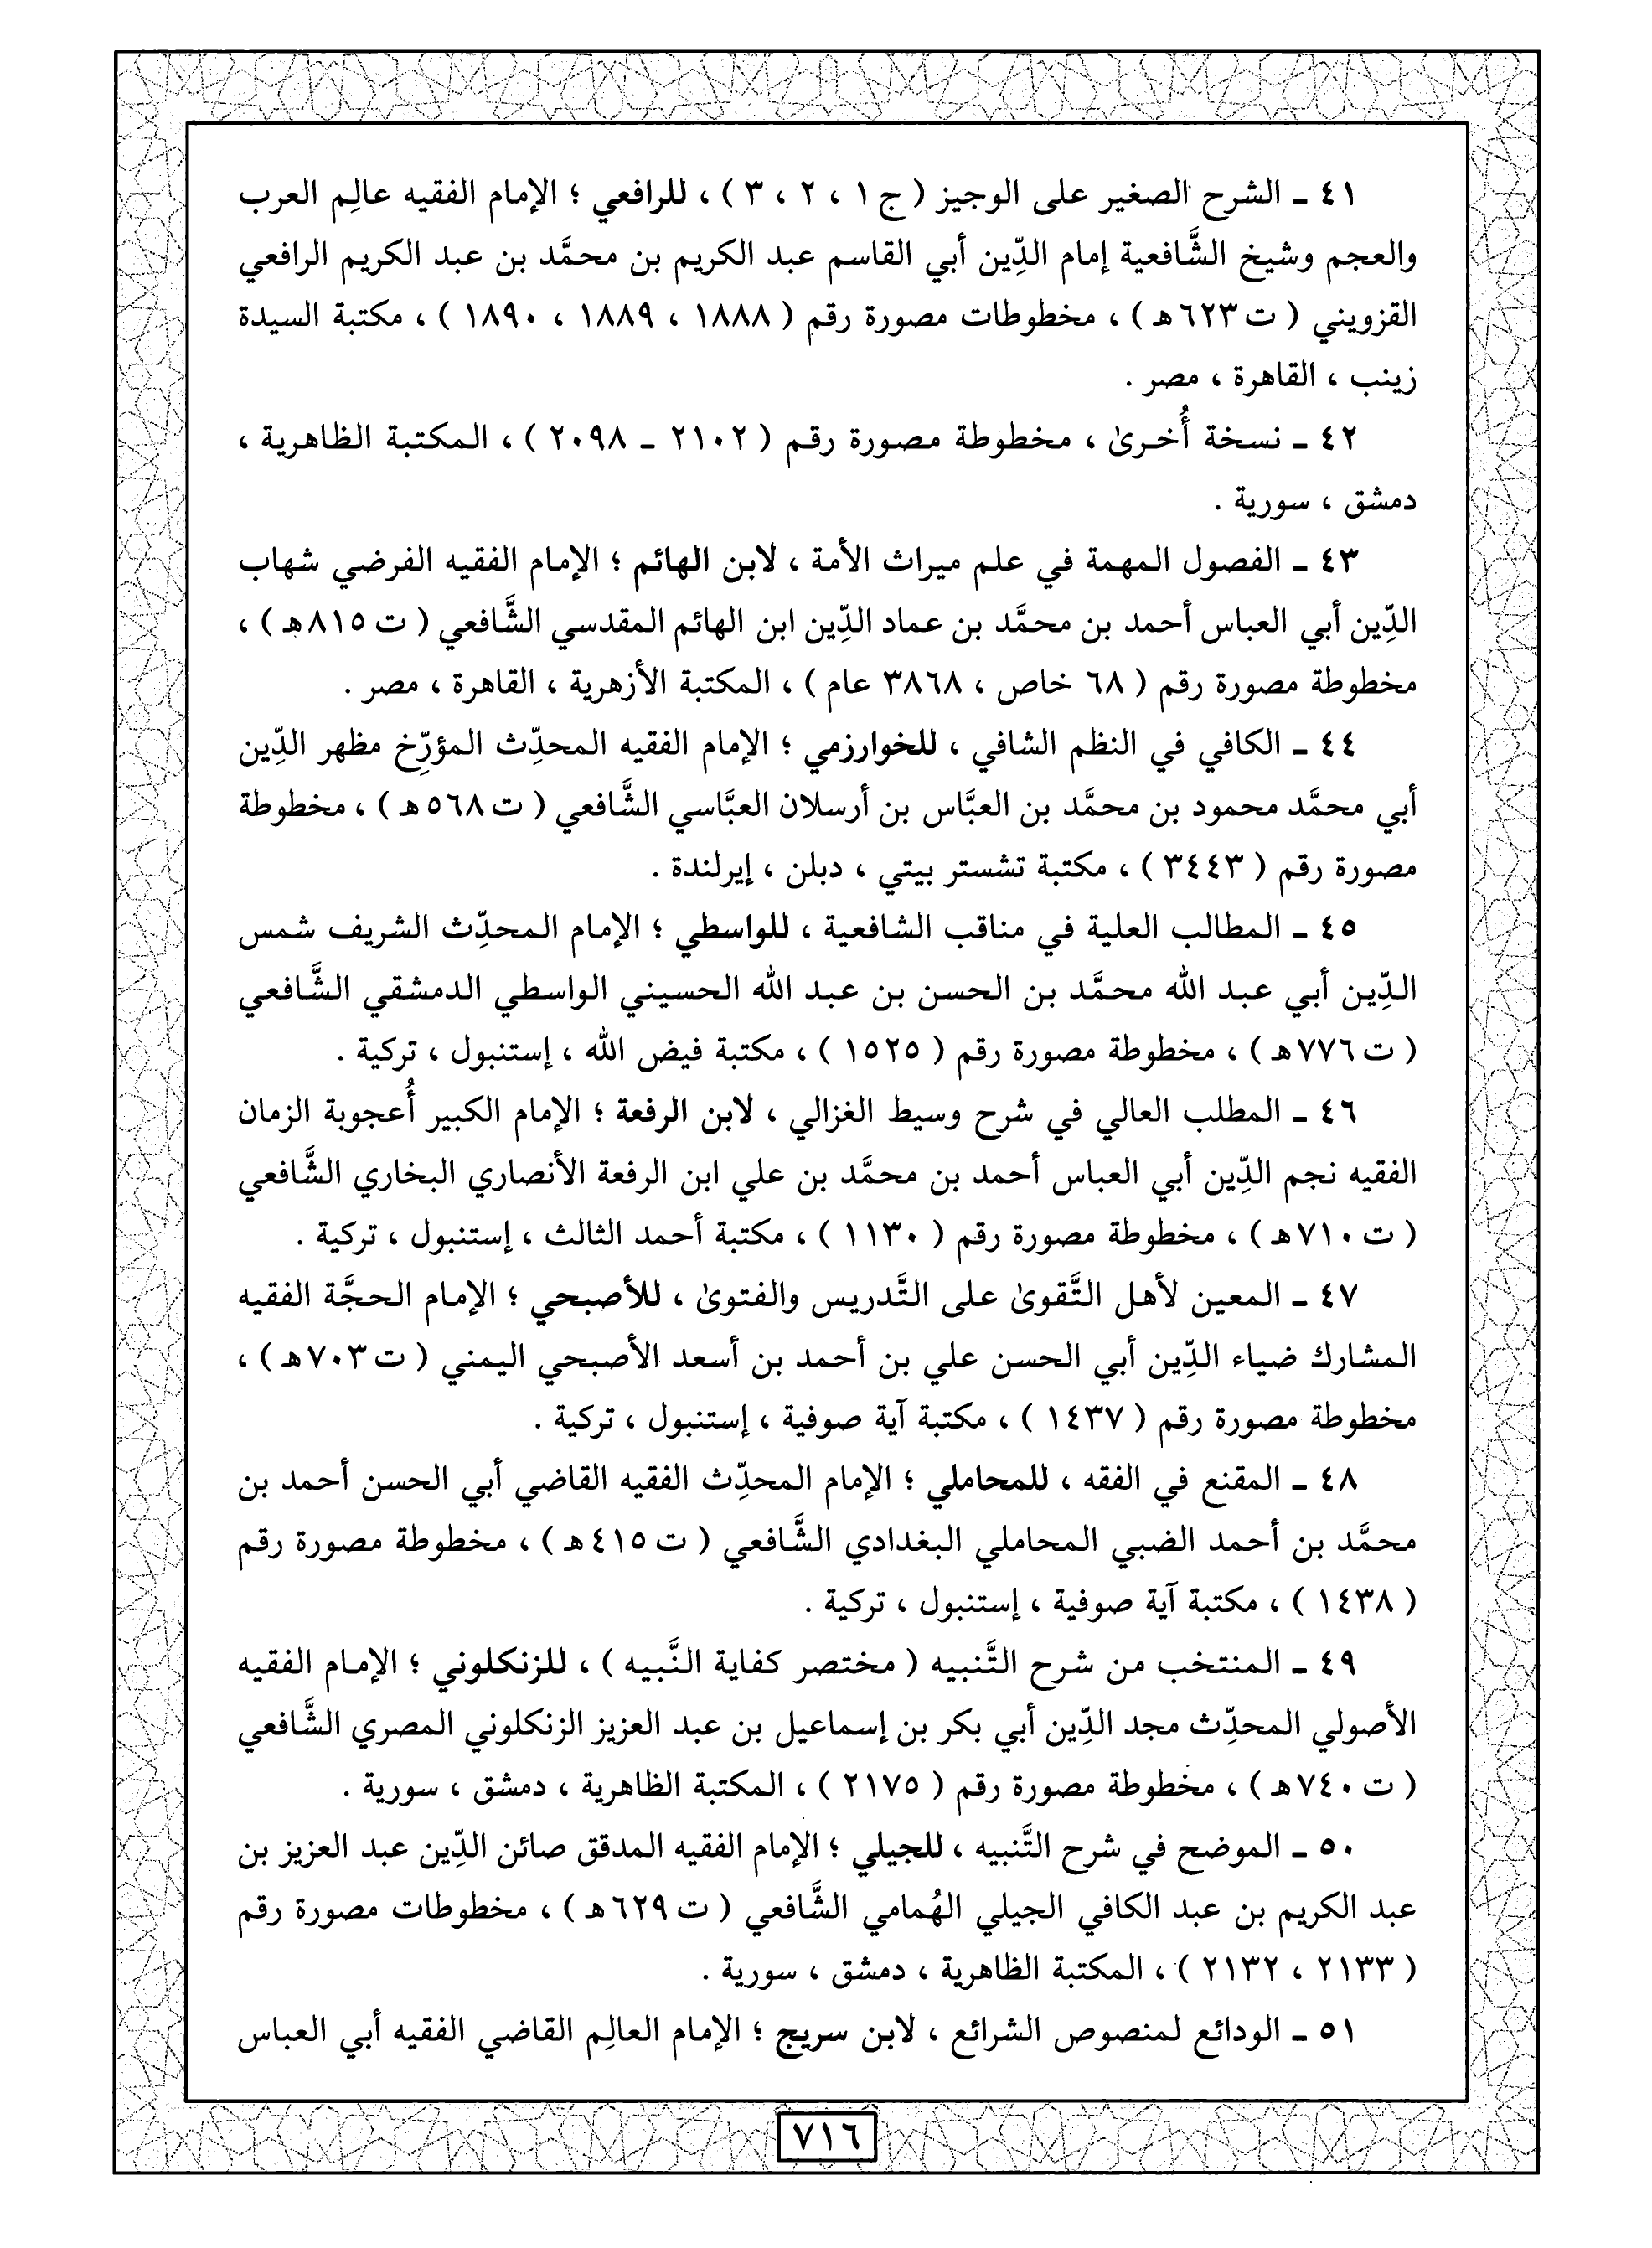 ٤١ ـ الشرح الصغير على الوجيز ( ج ١ ، ٢ ، ٣ ) ، للرافعي ؛ الإمام الفقيه عالِم العرب
والعجم وشيخ الشَّافعية إمام الدِّين أبي القاسم عبد الكريم بن محمَّد بن عبد الكريم الرافعي
القزويني ( ت ٦٢٣هـ ) ، مخطوطات مصورة رقم ( ١٨٨٨ ، ١٨٨٩ ، ١٨٩٠ ) ، مكتبة السيدة
زينب ، القاهرة ، مصر .
٤٢ ـ نسخة أُخرىٰ ، مخطوطة مصورة رقم ( ٢١٠٢ ـ ٢٠٩٨ ) ، المكتبة الظاهرية ،
دمشق ، سورية .
٤٣ ـ الفصول المهمة في علم ميراث الأمة ، لابن الهائم ؛ الإمام الفقيه الفرضي شهاب
الدِّين أبي العباس أحمد بن محمَّد بن عماد الدِّين ابن الهائم المقدسي الشَّافعي ( ت ٨١٥هـ ) ،
مخطوطة مصورة رقم ( ٦٨ خاص ، ٣٨٦٨ عام ) ، المكتبة الأزهرية ، القاهرة ، مصر .
٤٤ ـ الكافي في النظم الشافي ، للخوارزمي ؛ الإمام الفقيه المحدِّث المؤرِّخ مظهر الدِّين
أبي محمَّد محمود بن محمَّد بن العبَّاس بن أرسلان العبَّاسي الشَّافعي ( ت ٥٦٨هـ ) ، مخطوطة
مصورة رقم ( ٣٤٤٣ ) ، مكتبة تشستر بيتي ، دبلن ، إيرلندة .
٤٥ ـ المطالب العلية في مناقب الشافعية ، للواسطي ؛ الإمام المحدِّث الشريف شمس
الدِّين أبي عبد الله محمَّد بن الحسن بن عبد الله الحسيني الواسطي الدمشقي الشَّافعي
( ت ٧٧٦هـ ) ، مخطوطة مصورة رقم ( ١٥٢٥ ) ، مكتبة فيض الله ، إستنبول ، تركية .
٤٦ ـ المطلب العالي في شرح وسيط الغزالي ، لابن الرفعة ؛ الإمام الكبير أُعجوبة الزمان
الفقيه نجم الدِّين أبي العباس أحمد بن محمَّد بن علي ابن الرفعة الأنصاري البخاري الشَّافعي
( ت ٧١٠هـ ) ، مخطوطة مصورة رقم ( ١١٣٠ ) ، مكتبة أحمد الثالث ، إستنبول ، تركية .
٤٧ ـ المعين لأهل التَّقوىٰ على التَّدريس والفتوىٰ ، للأصبحي ؛ الإمام الحجَّة الفقيه
المشارك ضياء الدِّين أبي الحسن علي بن أحمد بن أسعد الأصبحي اليمني ( ت ٧٠٣هـ ) ،
مخطوطة مصورة رقم ( ١٤٣٧ ) ، مكتبة آية صوفية ، إستنبول ، تركية .
٤٨ ـ المقنع في الفقه ، للمحاملي ؛ الإمام المحدِّث الفقيه القاضي أبي الحسن أحمد بن
محمَّد بن أحمد الضبي المحاملي البغدادي الشَّافعي ( ت ٤١٥هـ ) ، مخطوطة مصورة رقم
( ١٤٣٨ ) ، مكتبة آية صوفية ، إستنبول ، تركية .
٤٩ ـ المنتخب من شرح التَّنبيه ( مختصر كفاية النَّبيه ) ، للزنكلوني ؛ الإمام الفقيه
الأصولي المحدِّث مجد الدِّين أبي بكر بن إسماعيل بن عبد العزيز الزنكلوني المصري الشَّافعي
( ت ٧٤٠هـ ) ، مخطوطة مصورة رقم ( ٢١٧٥ ) ، المكتبة الظاهرية ، دمشق ، سورية .
٥٠ ـ الموضح في شرح التَّنبيه ، للجيلي ؛ الإمام الفقيه المدقق صائن الدِّين عبد العزيز بن
عبد الكريم بن عبد الكافي الجيلي الهُمامي الشَّافعي ( ت ٦٢٩هـ ) ، مخطوطات مصورة رقم
( ٢١٣٣ ، ٢١٣٢ ) ، المكتبة الظاهرية ، دمشق ، سورية .
٥١ ـ الودائع لمنصوص الشرائع ، لابن سريج ؛ الإمام العالِم القاضي الفقيه أبي العباس
٧١٦